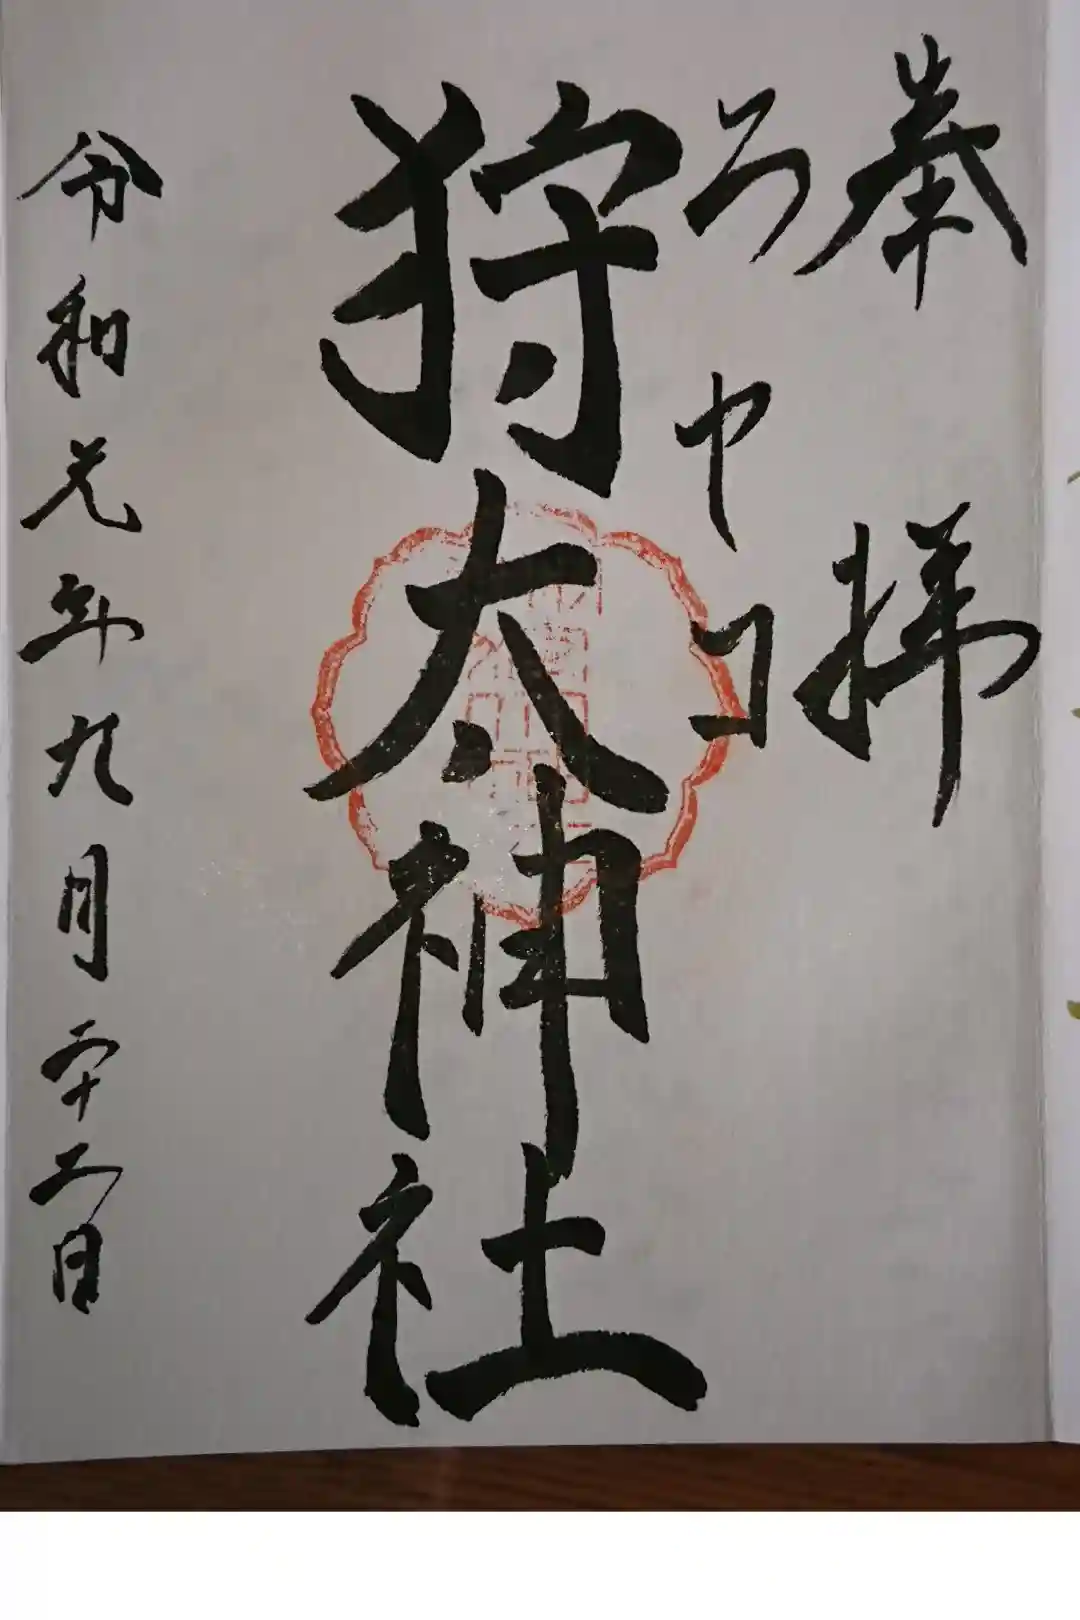 奉拝
ニセコ
狩太神社
令和元年九月二十二日